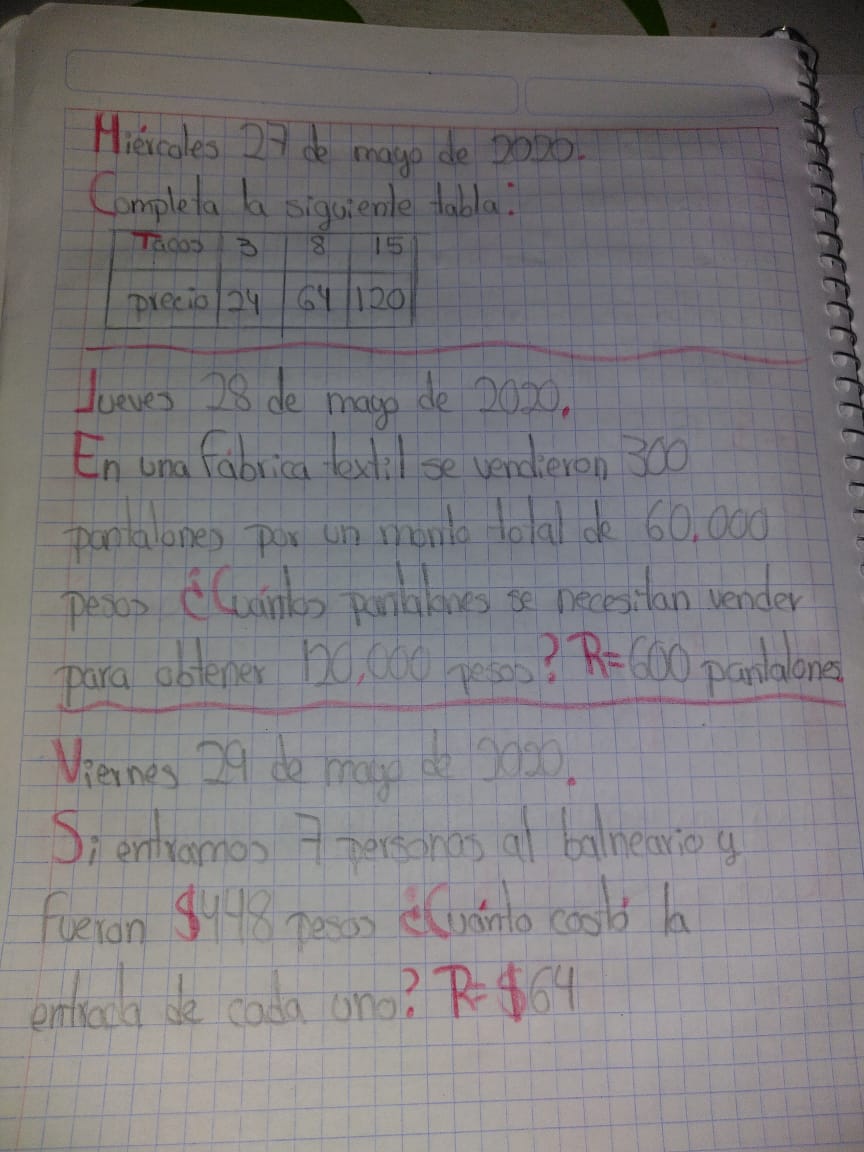 Miércoles 27 de mayo de 2020.
Completa la siguiente tabla:
Tacos 3 8 15
precio 24 64 120
Jueves 28 de mayo de 2020.
En una fábrica textil se vendieron 300
pantalones por un monto total de 60,000
pesos ¿Cuántos pantalones se necesitan vender
para obtener 120,000 pesos? R=600 pantalones
Viernes 29 de mayo de 2020.
Si entramos 7 personas al balneario y
fueron $448 pesos ¿Cuánto costó la
entrada de cada uno? R= $64